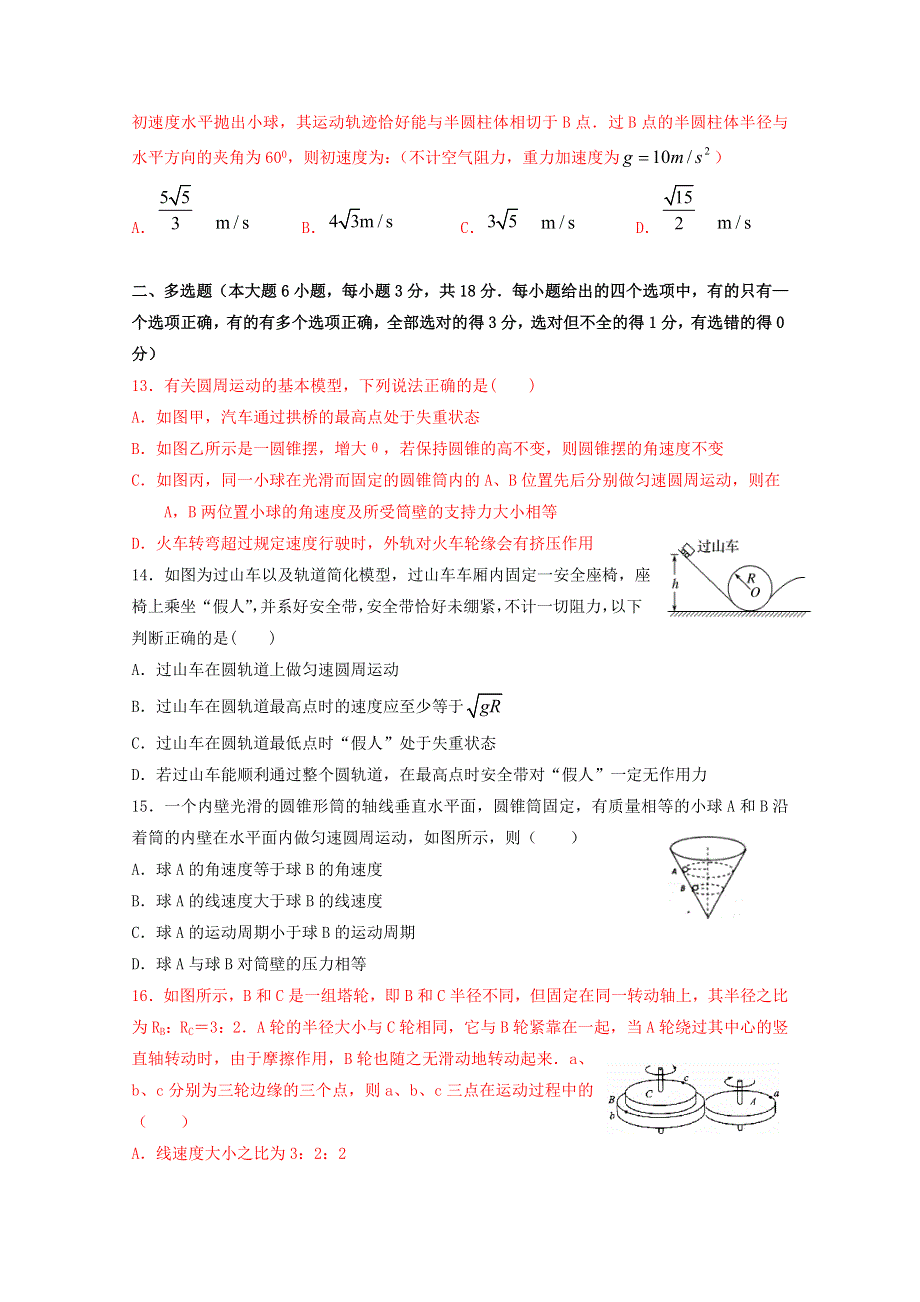 初速度水平抛出小球，其运动轨迹恰好能与半圆柱体相切于 B 点．过 B 点的半圆柱体半径与
水平方向的夹角为 60⁰，则初速度为：（不计空气阻力，重力加速度为 g = 10m / s²）
A． 5√5/3 m / s B． 4√3m / s C． 3√5 m / s D． √15/2 m / s
二、多选题（本大题 6 小题，每小题 3 分，共 18 分．每小题给出的四个选项中，有的只有一
个选项正确，有的有多个选项正确，全部选对的得 3 分，选对但不全的得 1 分，有选错的得 0
分）
13．有关圆周运动的基本模型，下列说法正确的是(　　)
A．如图甲，汽车通过拱桥的最高点处于失重状态
B．如图乙所示是一圆锥摆，增大 θ，若保持圆锥的高不变，则圆锥摆的角速度不变
C．如图丙，同一小球在光滑而固定的圆锥筒内的 A、B 位置先后分别做匀速圆周运动，则在
A，B 两位置小球的角速度及所受筒壁的支持力大小相等
D．火车转弯超过规定速度行驶时，外轨对火车轮缘会有挤压作用
过山车
h
R
O
14．如图为过山车以及轨道简化模型，过山车车厢内固定一安全座椅，座
椅上乘坐“假人”，并系好安全带，安全带恰好未绷紧，不计一切阻力，以下
判断正确的是(　　)
A．过山车在圆轨道上做匀速圆周运动
B．过山车在圆轨道最高点时的速度应至少等于√gR
C．过山车在圆轨道最低点时“假人”处于失重状态
D．若过山车能顺利通过整个圆轨道，在最高点时安全带对“假人”一定无作用力
15．一个内壁光滑的圆锥形筒的轴线垂直水平面，圆锥筒固定，有质量相等的小球 A 和 B 沿
着筒的内壁在水平面内做匀速圆周运动，如图所示，则（　　）
A．球 A 的角速度等于球 B 的角速度
B．球 A 的线速度大于球 B 的线速度
C．球 A 的运动周期小于球 B 的运动周期
D．球 A 与球 B 对筒壁的压力相等
A
B
16．如图所示，B 和 C 是一组塔轮，即 B 和 C 半径不同，但固定在同一转动轴上，其半径之比
为 R_B：R_C＝3：2．A 轮的半径大小与 C 轮相同，它与 B 轮紧靠在一起，当 A 轮绕过其中心的竖
直轴转动时，由于摩擦作用，B 轮也随之无滑动地转动起来．a、
b、c 分别为三轮边缘的三个点，则 a、b、c 三点在运动过程中的
（　　）
B
b
C
c
A
a
A．线速度大小之比为 3：2：2